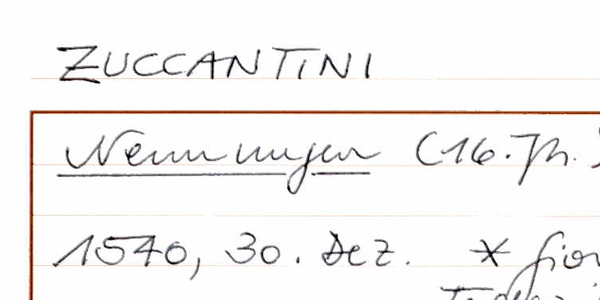 ZUCCANTINI
Nennungen (16. Jh.)
1540, 30. Dez. * Gior